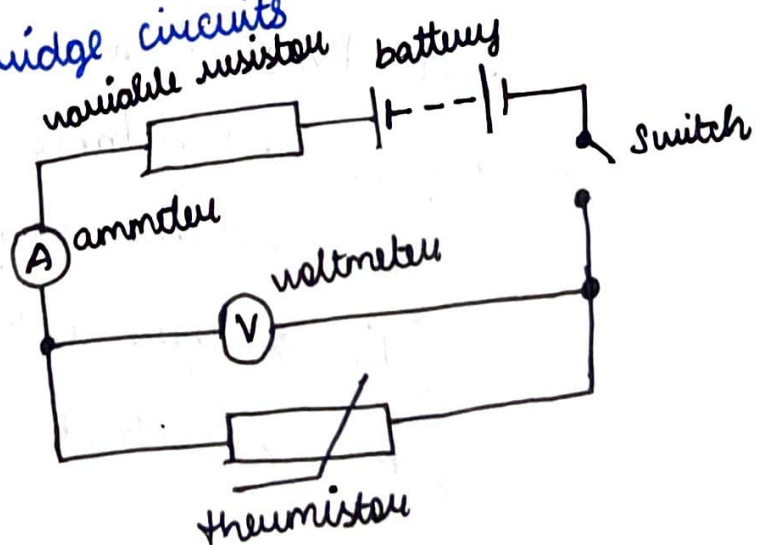 circuits
variable resistor
battery
switch
A ammeter
voltmeter
V
thermistor